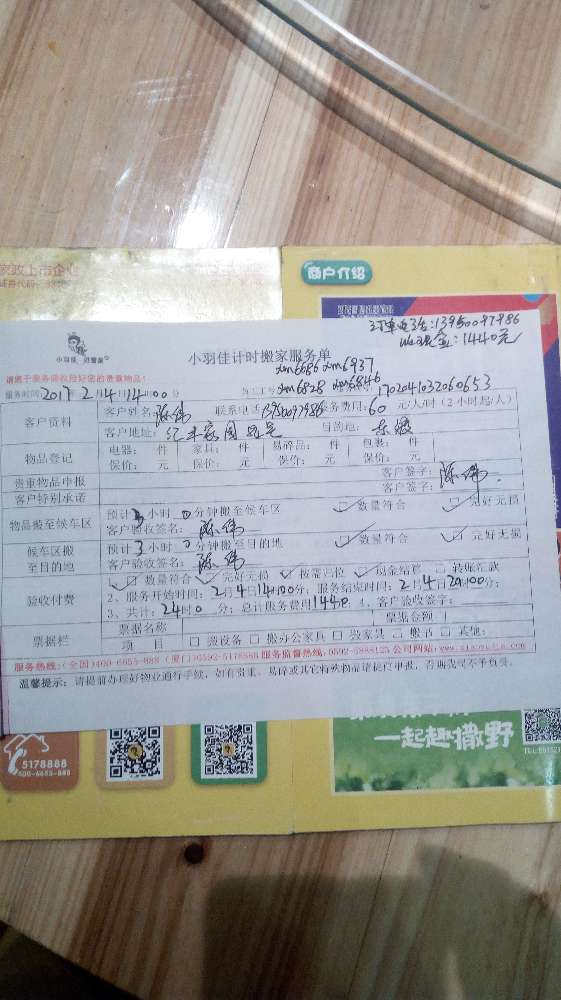 家政上市企业
商户介绍
订单电话:13950097986
收现金:1440元
小羽佳 阿普象
小羽佳计时搬家服务单
xm6686 xm6937
请您于服务前收捡好您的贵重物品!
xm6828 xm6846
服务时间2017年2月4日14时00分 员工工号 1702041032060653
客户资料 客户姓名:陈伟 联系电话13950097986 服务费用:60元/人/时(2小时起/人)
客户地址: 目的地:
物品登记 电器: 件 家具: 件 易碎品: 件 包裹: 件
保价: 元 保价: 元 保价: 元 保价: 元
贵重物品申报 客户签字:陈伟
客户特别承诺 客户签名:
物品搬至候车区 预计3小时0分钟搬至候车区 数量符合 完好无损
客户验收签名:陈伟
候车区搬至目的地 预计3小时0分钟搬至目的地 数量符合 完好无损
客户验收签名:陈伟
验收付费 1、数量符合 完好无损 按需归位 现金结算 转账汇款
2、服务开始时间:2月4日14时00分,服务结束时间:2月4日20时00分;
3、共计:24时0分;总计服务费用1440 4、客户验收签字:
票据栏 票据名称 票据金额
项目 □搬设备 □搬办公家具 □搬家具 □搬书 □其他:
服务热线:(全国)400-6655-888 (厦门)0592-5178888 服务监督热线:0592-5888125 公司网站:
温馨提示:请提前办理好物业通行手续,如有贵重、易碎或其它特殊物品请提位申报,否则我司不予负责。
5178888
400-6655-888
一起趣撒野